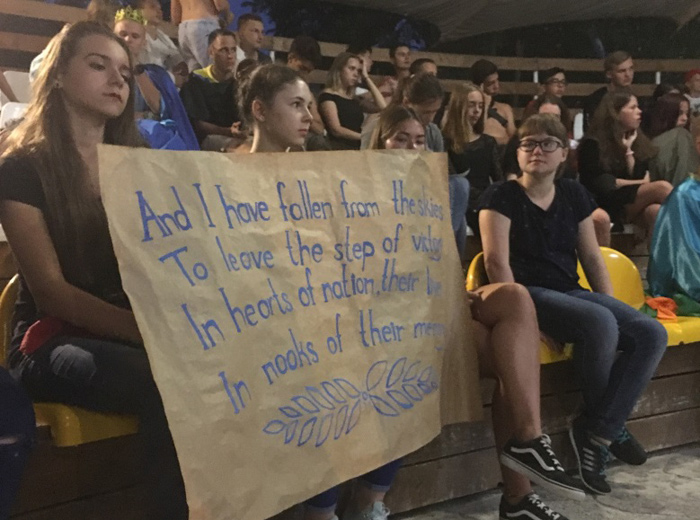 And I have fallen from the skies
To leave the step of
In hearts of nation, their
In nooks of their